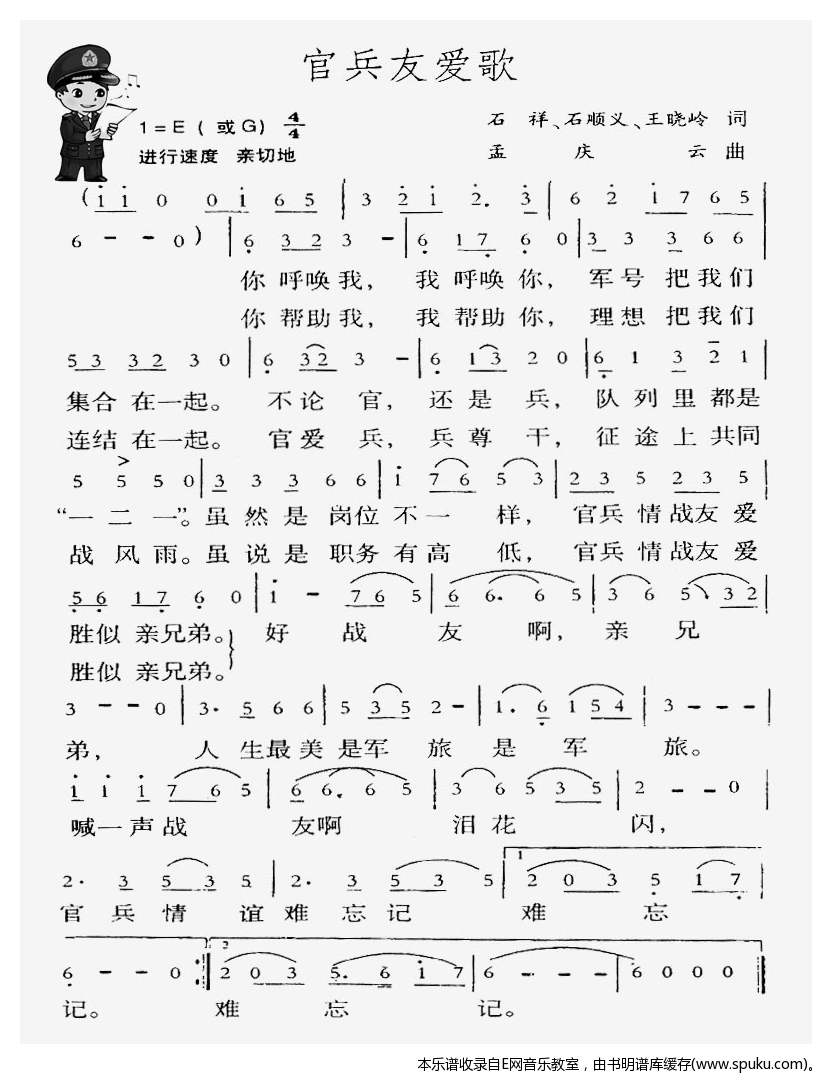 官兵友爱歌
1=E（或G）4/4
石 祥、石顺义、王晓岭 词
进行速度 亲切地
孟 庆 云 曲
(i i 0 0 i 6 5 | 3 2 i 2. 3 | 6 2 i 7 6 5
6 - - 0) | 6 3 2 3 - | 6 1 7 6 0 | 3 3 3 6 6
你 呼唤 我， 我 呼唤 你， 军 号 把 我 们
你 帮助 我， 我 帮助 你， 理 想 把 我 们
5 3 3 2 3 0 | 6 3 2 3 - | 6 1 3 2 0 | 6 1 3 2 1
集合 在一起。 不论 官， 还是 兵， 队列里都是
连结 在一起。 官爱 兵， 兵尊 干， 征途上共同
5 5 5 0 | 3 3 3 6 6 | i 7 6 5 3 | 2 3 5 2 3 5
“一 二 一”。虽 然 是 岗位 不一 样， 官兵 情战友 爱
战 风 雨。虽 说 是 职务 有高 低， 官兵 情战友 爱
5 6 1 7 6 0 | i - 7 6 5 | 6 6. 6 5 | 3 6 5 3 2
胜似 亲兄弟。 好 战 友 啊，亲 兄
胜似 亲兄弟。
3 - - 0 | 3. 5 6 6 | 5 3 5 2 - | 1. 6 1 5 4 | 3 - - - |
弟， 人 生最 美 是军 旅 是 军 旅。
i i i 7 6 5 | 6 6. 6 5 | 3 6 5 3 5 | 2 - - 0 |
喊一声战 友啊 泪花 闪，
2. 3 5 3 5 | 2. 3 5 3 5 | 1 2 0 3 5 1 7 |
官 兵 情 谊 难 忘 记 难 忘
6 - - 0 :| 2 2 0 3 5. 6 i 7 | 6 - - - | 6 0 0 0 |
记。 难 忘 记。
本乐谱收录自E网音乐教室，由书明谱库缓存(www.spuku.com)。